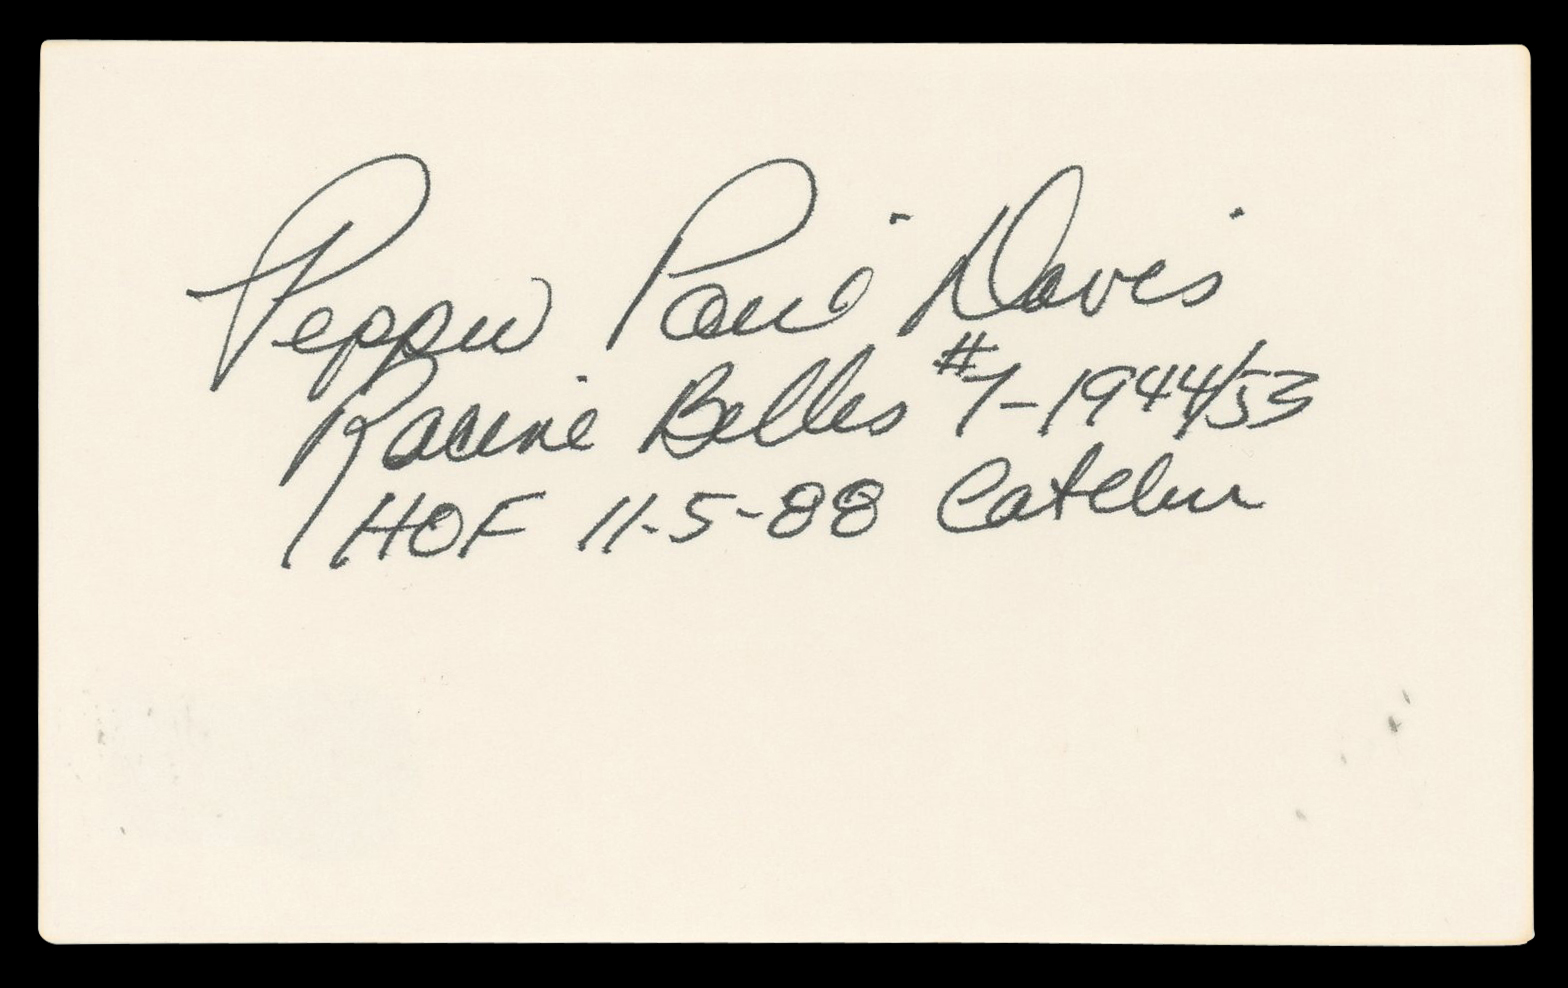 Pepper Paire Davis
Racine Belles #7-1944/53
HOF 11-5-88 Catcher